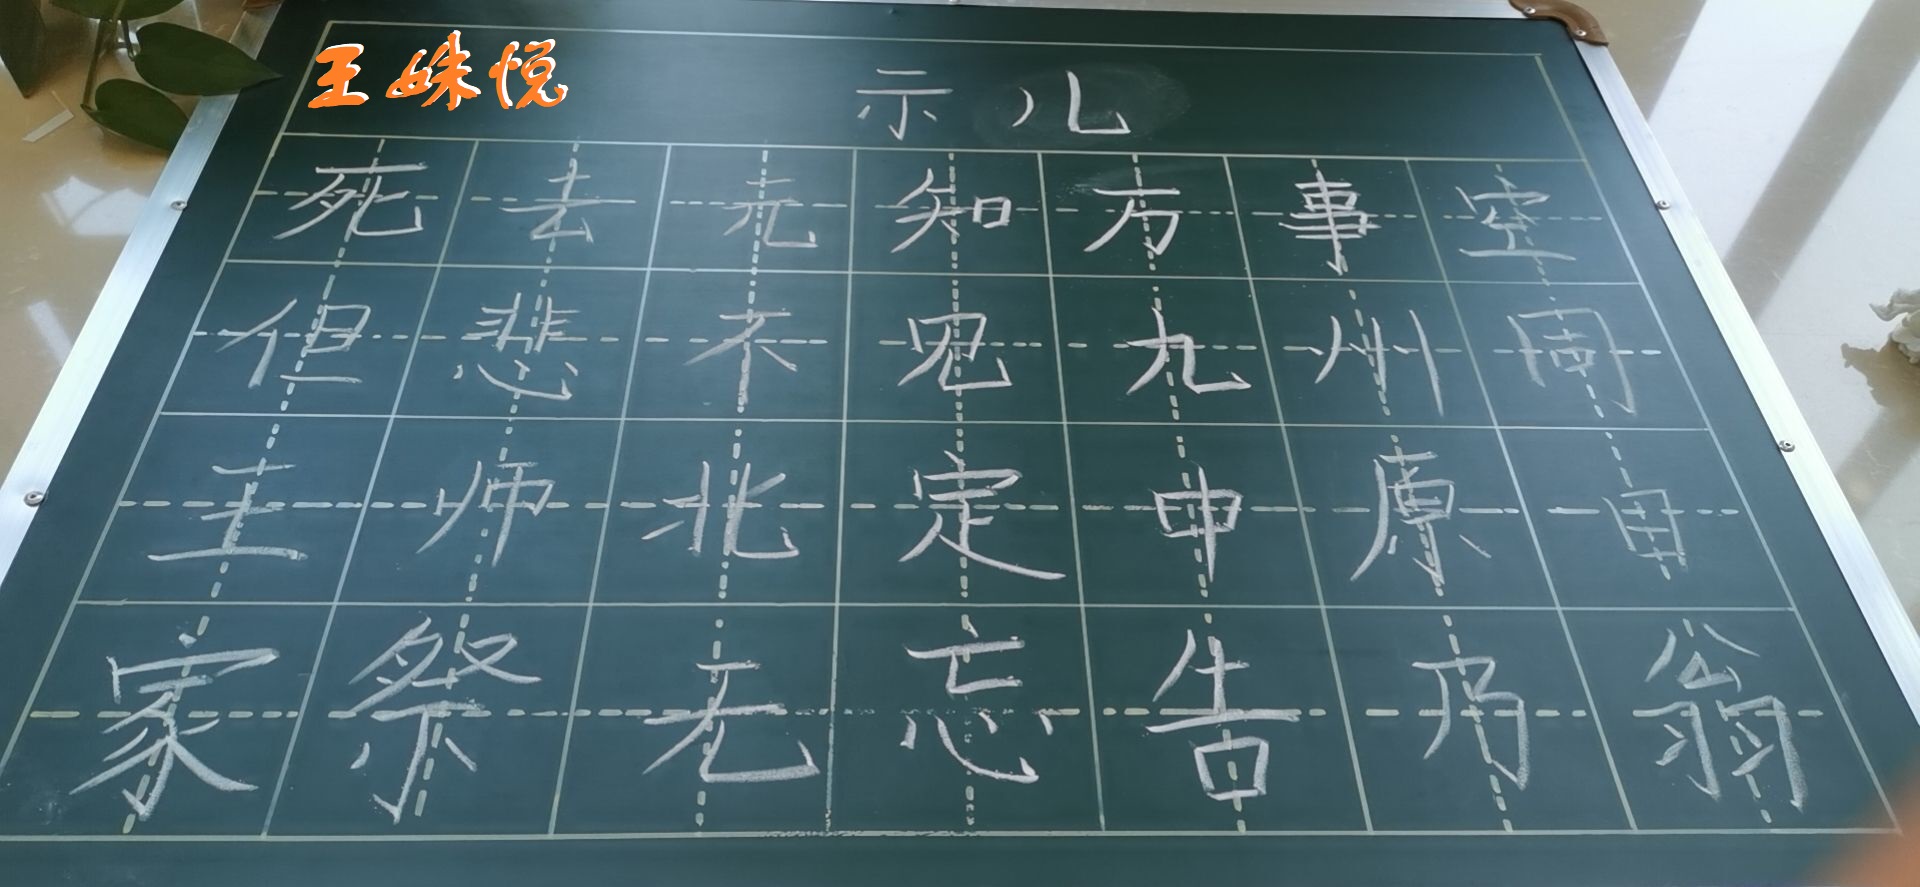 王姝悦
示儿
死去元知万事空
但悲不见九州同
王师北定中原日
家祭无忘告乃翁